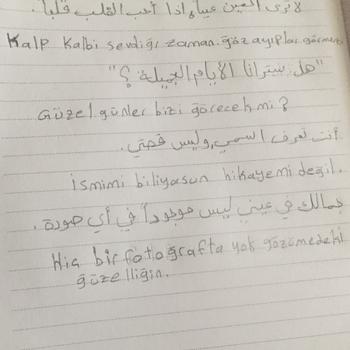 لا ترى العين عيباً وإذا أحب القلب قلباً.
Kalp kalbi sevdiği zaman. göz ayıpları görmez
"هل سترانا الأيام الجميلة ؟"
Güzel günler bizi görecek mi?
أنت تعرف اسمي وليس قصتي.
ismimi biliyorsun hikayemi değil.
جمالك في عيني ليس موجوداً في أي صورة.
Hiç bir fotoğrafta yok gözümedeki
güzelliğin.